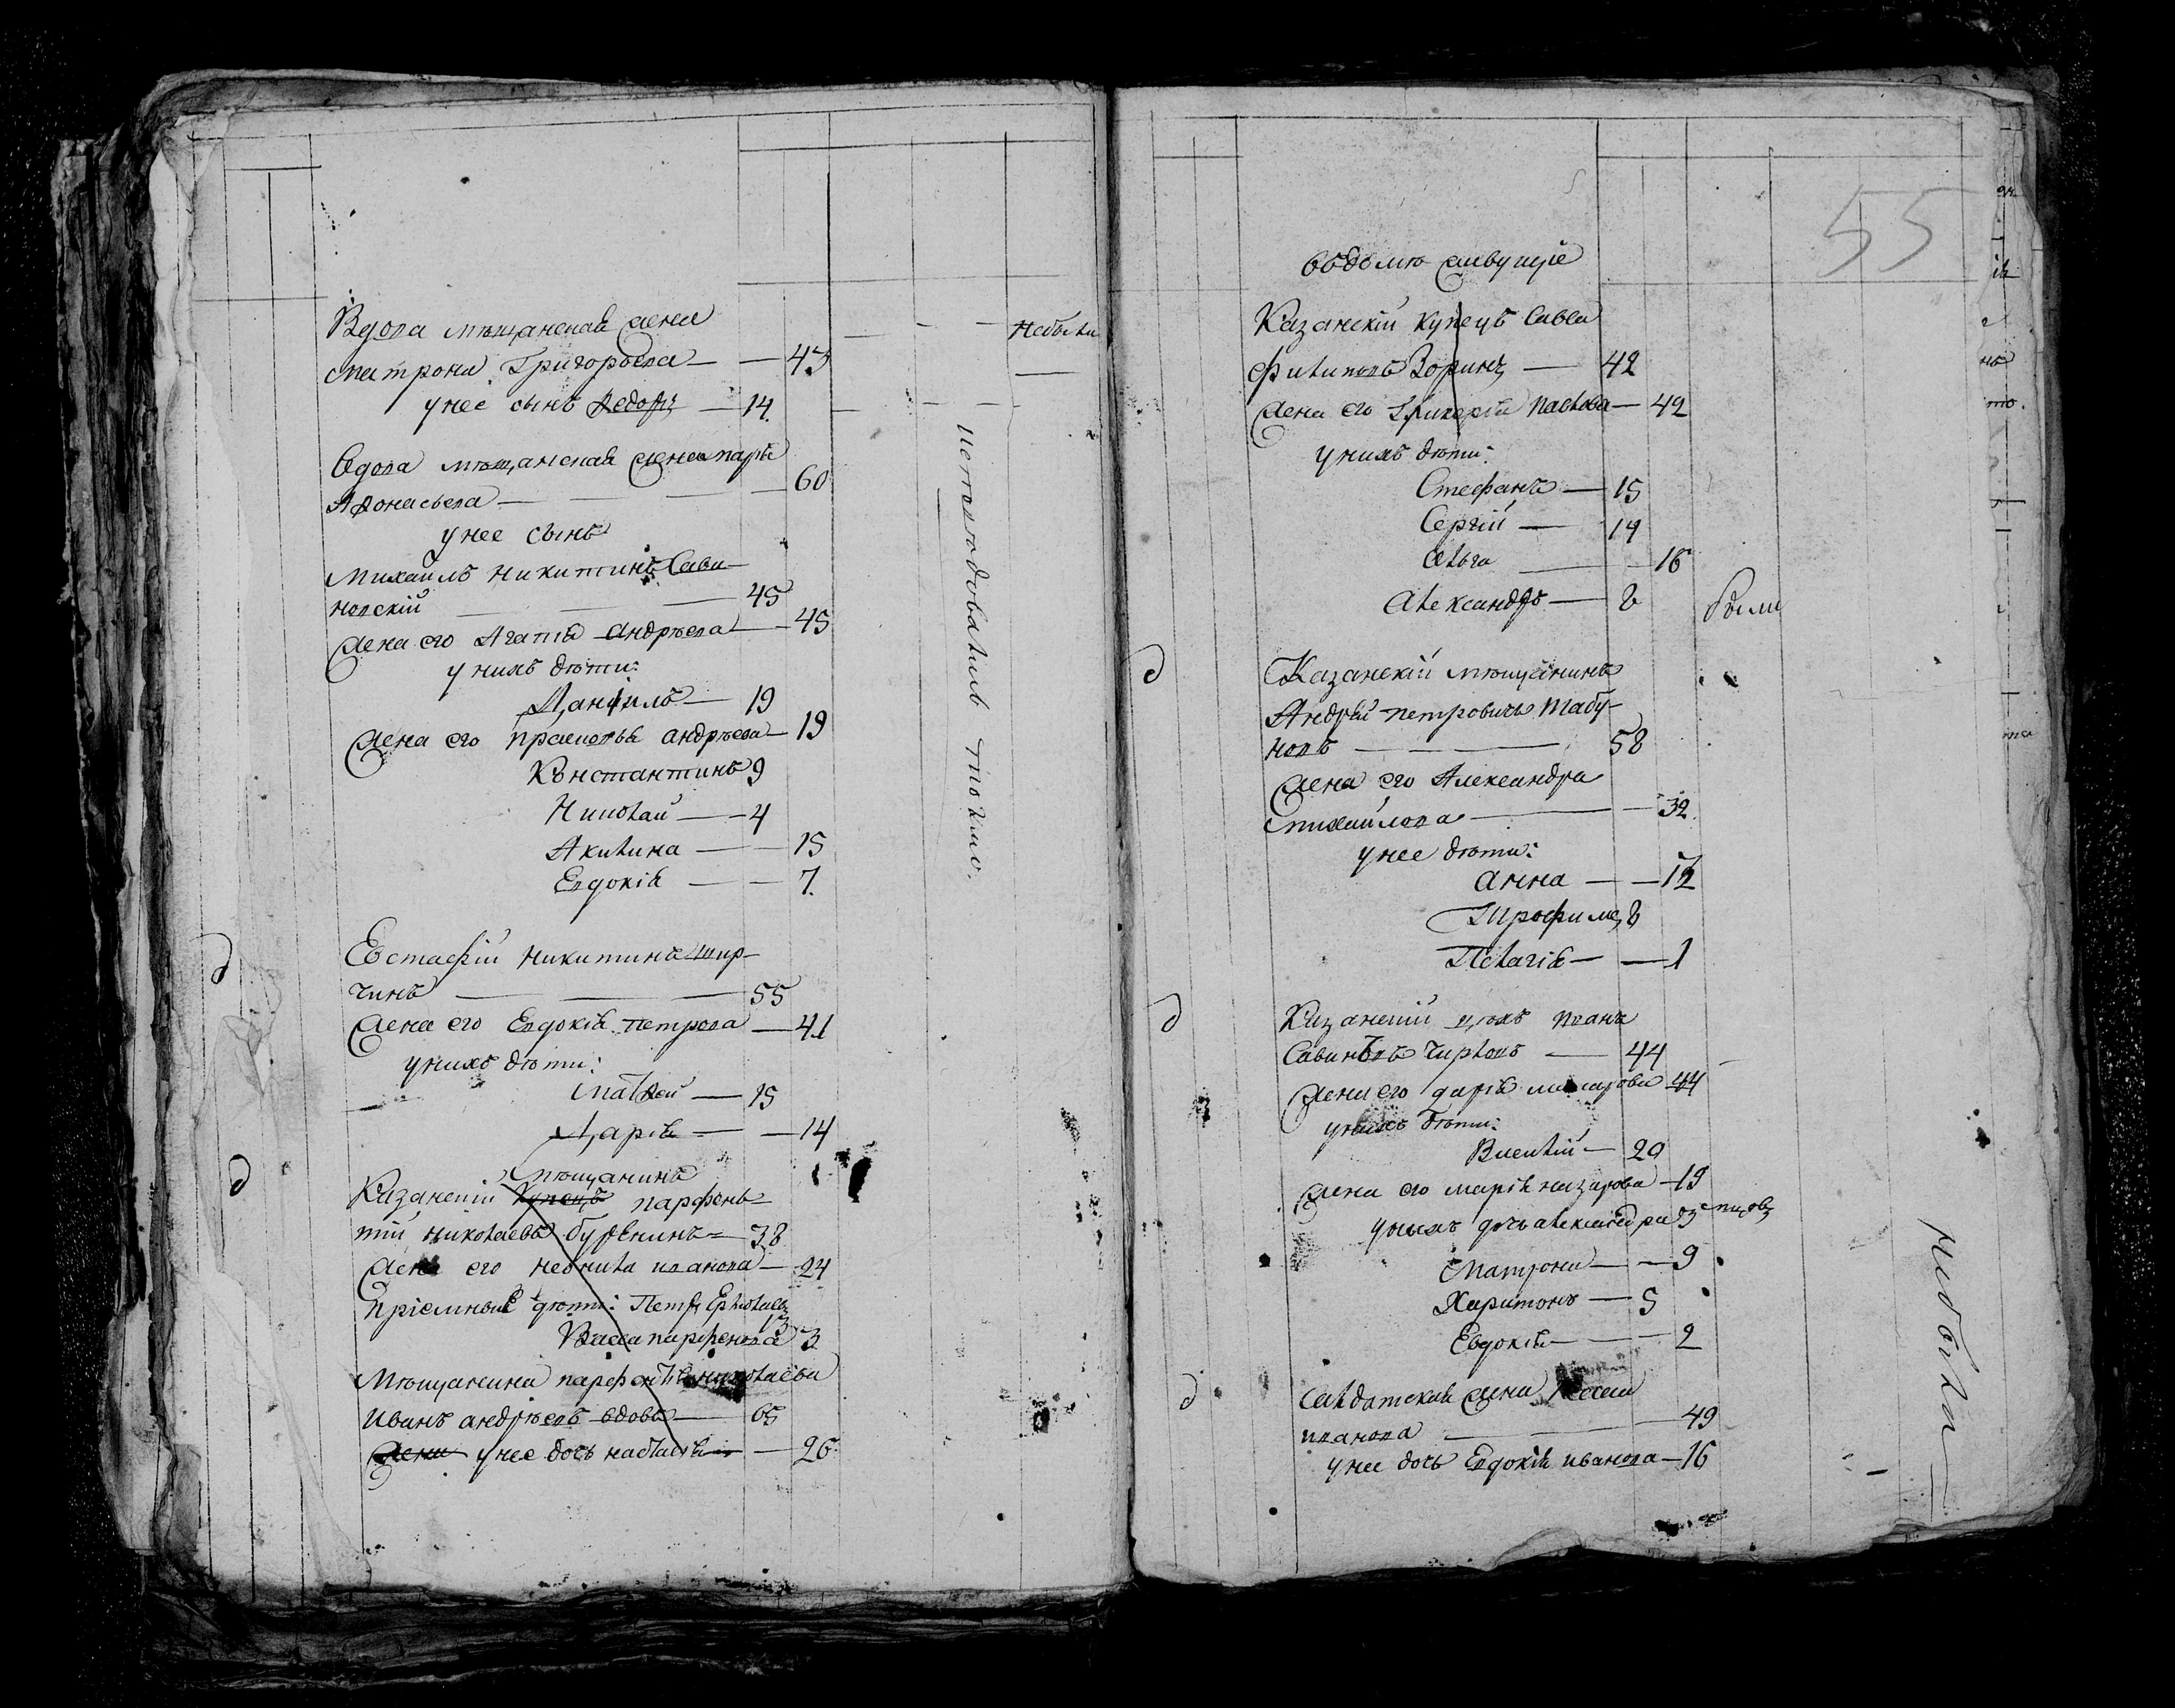 Вдова мѣщанская жена
Матрона Григорьева — 43 — — Небыли
у нее сынъ Ѳедоръ — 14
Вдова мѣщанская жена Марья
Аѳонасьева — 60
у нее сынъ
Михаилъ Никитинъ Сави-
новскій — 45
Жена его Агаѳія Андрѣева — 45
у нихъ дѣти:
Даніилъ — 19
Жена его Прасковья Андрѣева — 19
Константинъ 9
Николай — 4
Акилина — 15
Евдокія — 7
Евстафій Никитинъ
чинъ — 55
Жена его Евдокія Петрова — 41
у нихъ дѣти:
Матѳей — 15
Дарія — 14
мѣщанинъ
Казанскій купецъ Парфень-
тій Николаевъ — 38
Жена его Неонила Иванова — 24
Пріемныя дѣти: Петръ 13
Васса Парфенова 3
Мѣщанина Парфентія Николаева
Иванъ Андрѣевъ вдовъ — 65
Жена у нее дочь Настасія — 26
исповѣдовались токмо
55
Въ домѣ живущіе
Казанскій купецъ Савва
Филиповъ Зоринъ — 42
Жена его Гликерія Павлова — 42
у нихъ дѣти:
Стефанъ — 15
Сергій — 14
Ольга — 16
Александръ — 8
были
Казанскій мѣщанинъ
Андрей Петровичъ Табу-
новъ — 58
Жена его Александра
Михайлова — 32
у нее дѣти:
Анна — 12
Трофимъ 8
Пелагія — 1
Казанскій цѣхъ Иванъ
Савиновъ — 44
Жена его Дарія Макарова 44
у нихъ дѣти:
Василій — 20
Жена его Марія Назарова — 19
у нихъ дочь Александра 3
Матрона — 9
Харитонъ — 5
Евдокія — 2
Салдатская жена
Иванова — 49
у нее дочь Евдокія Иванова — 16
Небыли